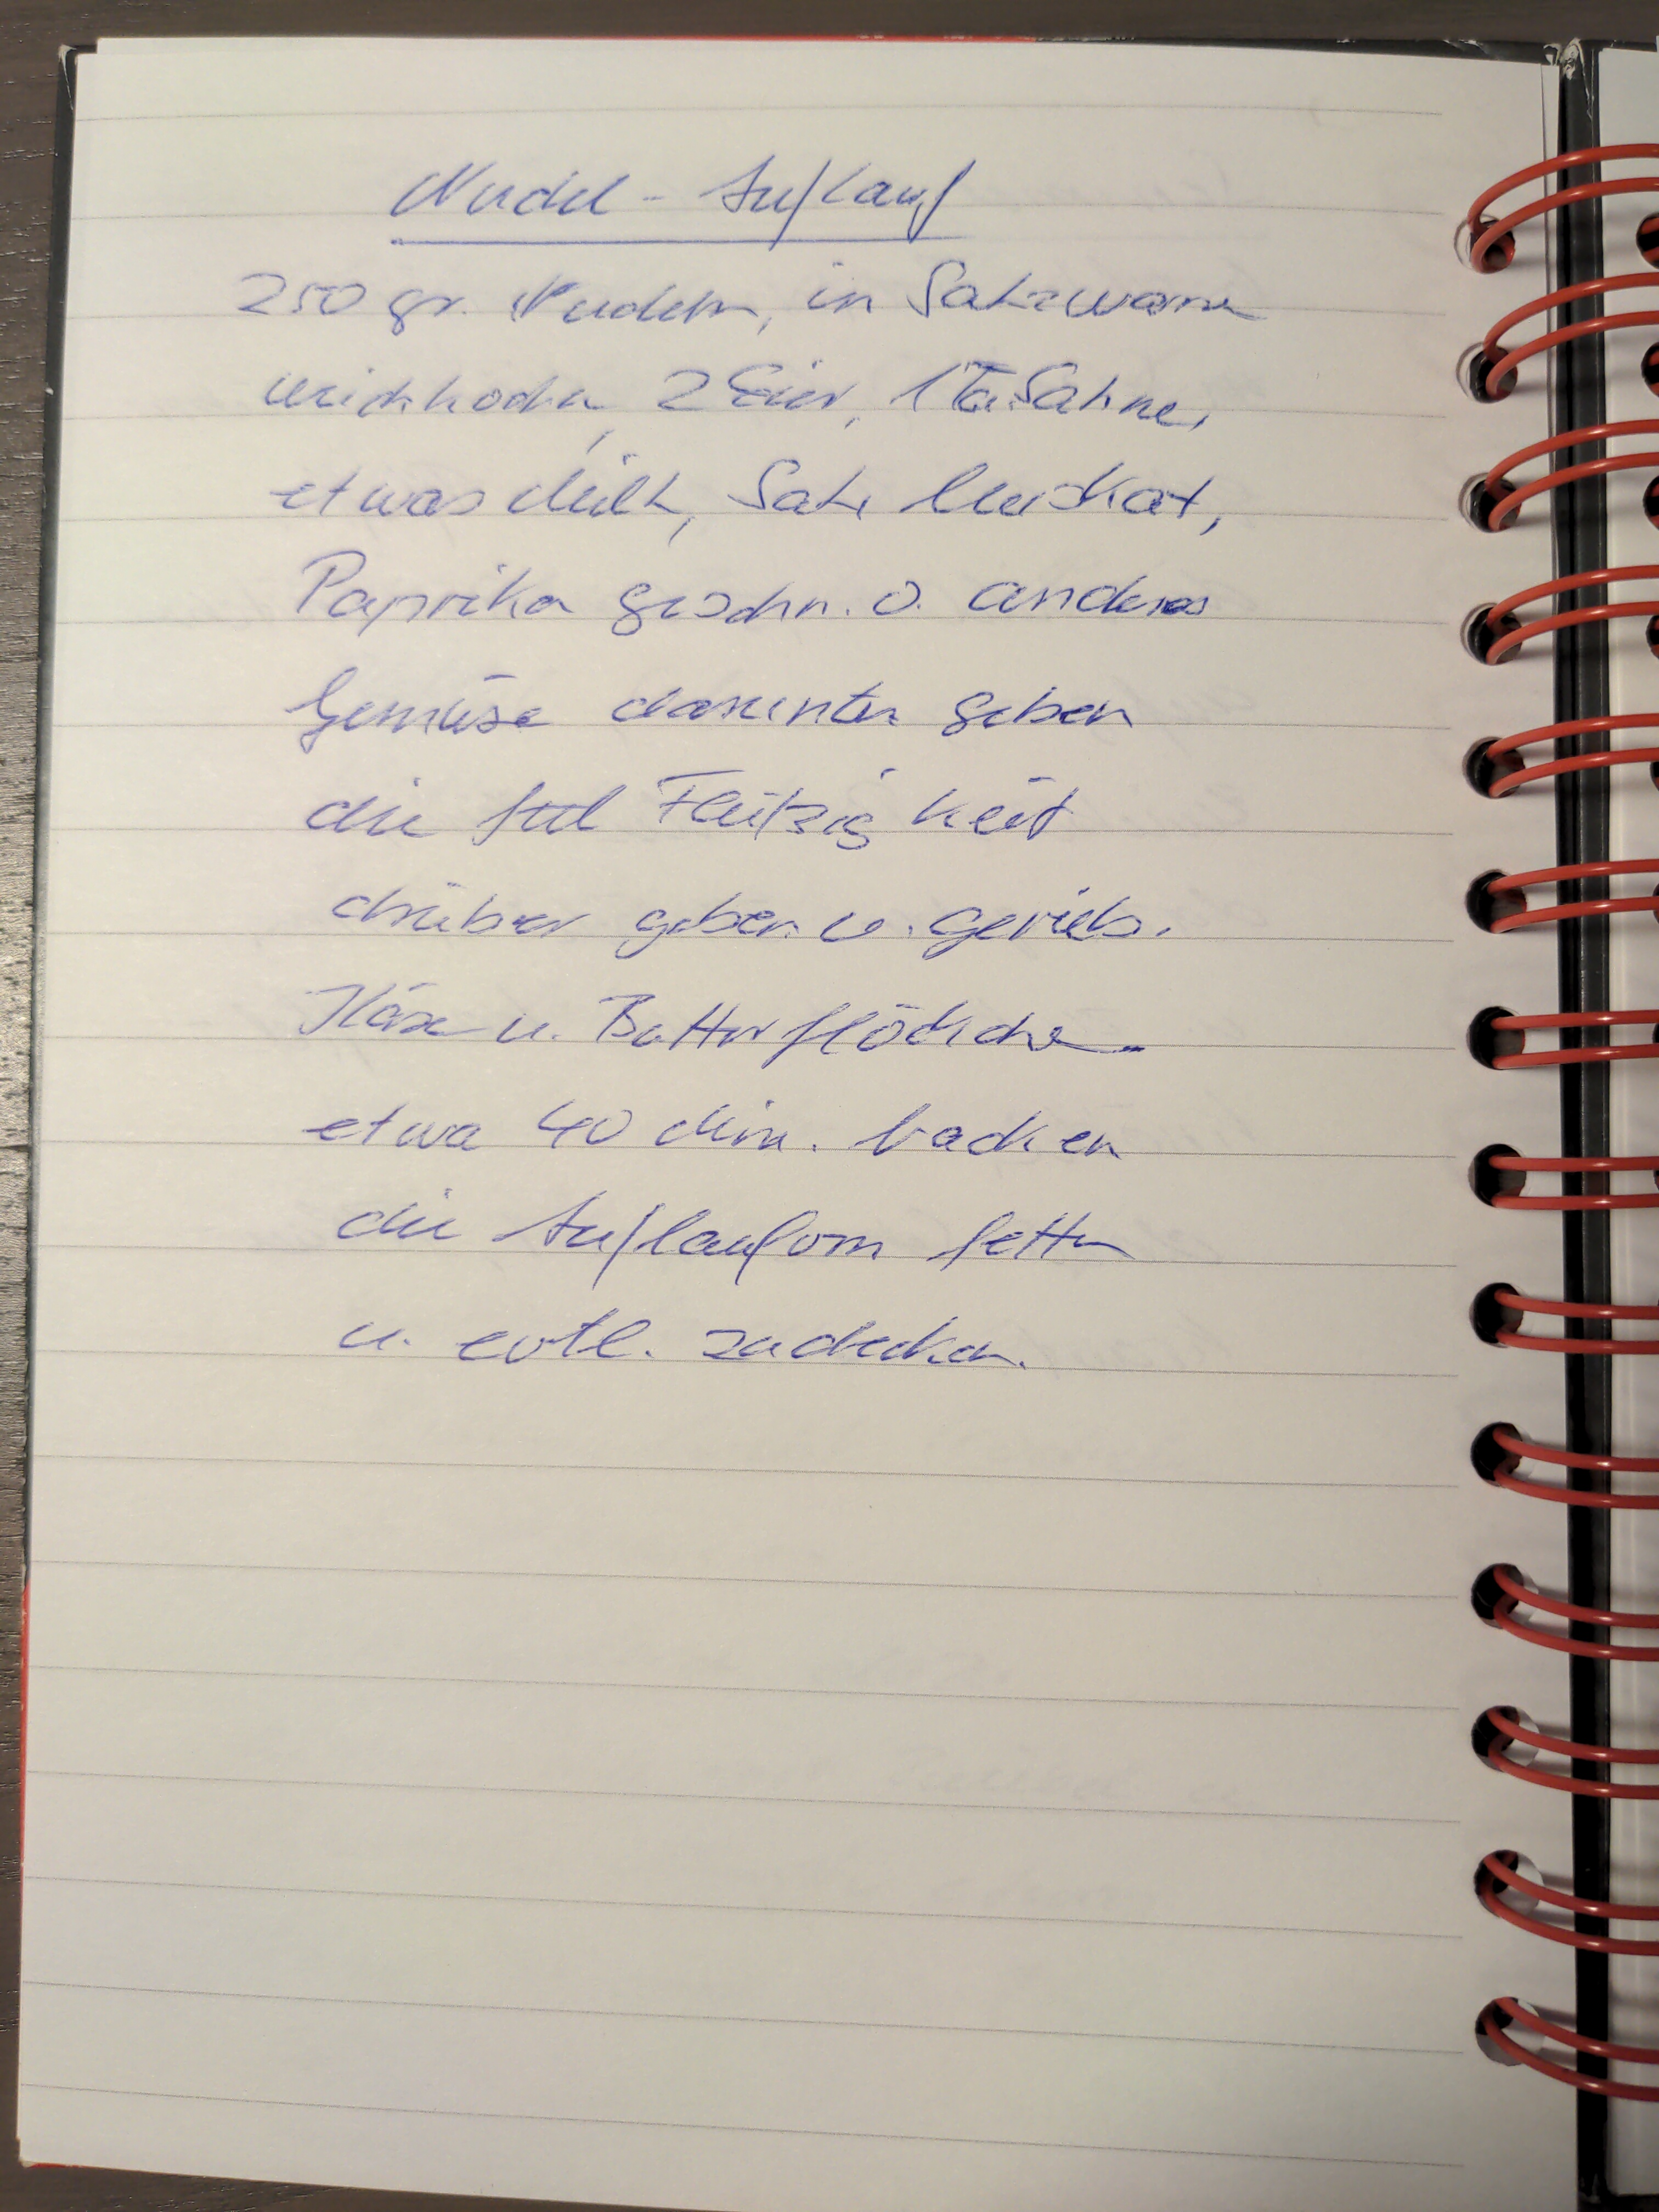 Nudel - Auflauf
250 gr. Nudeln, in Salzwasser
weichkochen, 2 Eier, 1 Ta. Sahne,
etwas Milch, Salz Muskat,
Paprika geschn. o. anderes
Gemüse darunter geben
die Flüßigkeit
drüber geben u. gerieb.
Käse u. Butterflöckchen
etwa 40 Min. backen
die Auflaufform fetten
u. evtl. zudecken.